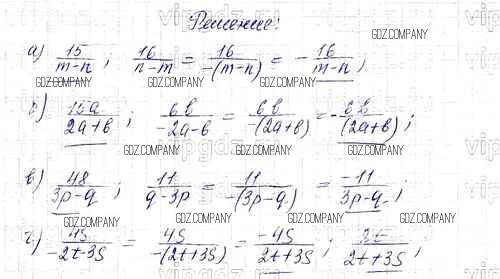 Решение:
GDZ.COMPANY
а) 15/(m-n); 16/(n-m) = 16/(-(m-n)) = -16/(m-n);
GDZ.COMPANY GDZ.COMPANY
б) 15a/(2a+b); 6b/(-2a-b) = 6b/(-(2a+b)) = -6b/(2a+b);
GDZ.COMPANY GDZ.COMPANY GDZ.COMPANY
в) 48/(3p-q); 11/(q-3p) = 11/(-(3p-q)) = -11/(3p-q);
GDZ.COMPANY GDZ.COMPANY GDZ.COMPANY
г) 4s/(-2t-3s) = 4s/(-(2t+3s)) = -4s/(2t+3s); /(2t+3s);
GDZ.COMPANY